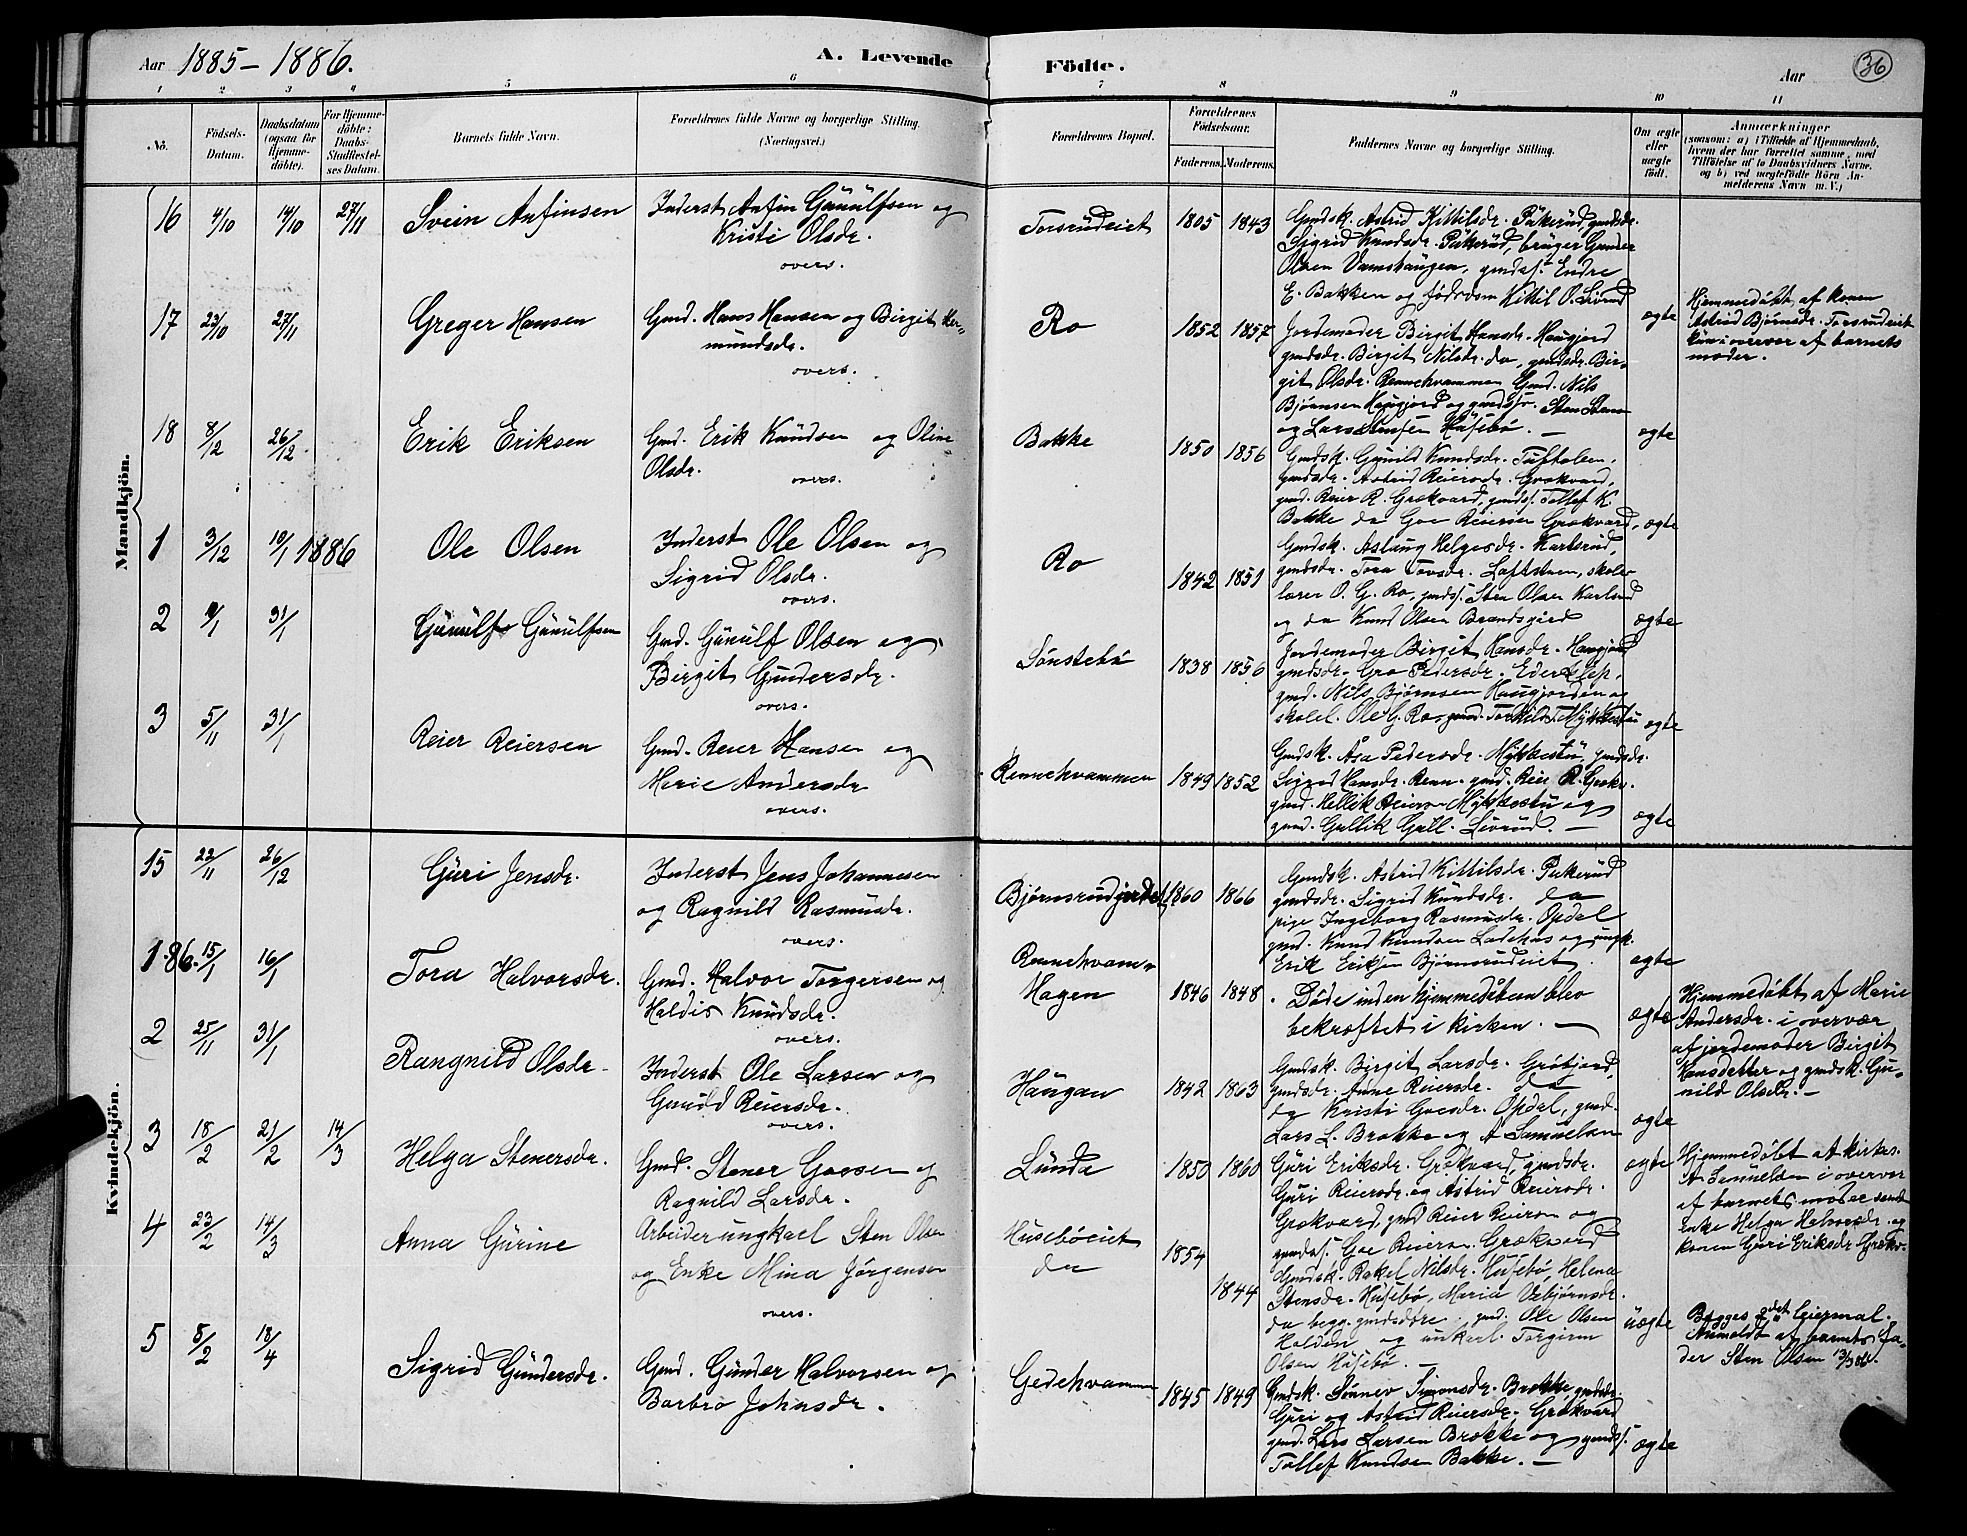 Aar 1885-1886.
A. Levende Födte.
Aar
36
1 2 3 4 5 6 7 8 9 10 11
No.
Födsels-
Datum.
Daabsdatum
(ogsaa for
Hjemme-
döbte).
For Hjemme-
döbte:
Daabs-
Stadfæstel-
ses Datum.
Barnets fulde Navn.
Forældrenes fulde Navne og borgerlige Stilling.
(Næringsvei.)
Forældrenes Bopæl.
Forældrenes
Födselsaar.
Faderens. Moderens.
Faddernes Navne og borgerlige Stilling.
Om ægte
eller
uægte
födt.
Anmærkninger
(saasom: a) i Tilfælde af Hjemmedaab,
hvem der har forrettet samme, med
Tilföielse af to Daabsvidners Navne,
og b) ved uægtefödte Börn An-
melderens Navn m. V.)
Mandkjön.
16 4/10 14/10 27/11 Svein Anfinsen
Inderst Anfin Gunulfsen og
Kristi Olsdr.
overs.
Torsrudeiet 1805 1843
Gmdsk. Astrid Kittilsdr. Pukerud, gmdsdr.
Sigrid Knudsdr. Pukerud, bruger Gunder
Olsen Vamshaugen, gmdss. Endre
E. Bakken og føderaam Kittil O. Livrud
ægte
Hjemmedøbt af konen
Astrid Bjørnsdr. Torsrudeiet
i overver af barnets
moder.
17 23/10 27/11 Greger Hansen
Gmd. Hans Hansen og Birgit Her-
mundsdr.
overs.
Ro 1852 1857
Jordemoder Birgit Hansdr. Haugjord
gmdsdr. Birgit Nilsdr. do, gmdsdr. Bir-
git Olsdr. Rennehvammen Gmd. Nils
Bjørnsen Haugjord og gmdss. Sten Sten
og Lars Husebø. —
ægte
18 8/12 26/12 Erik Eriksen
Gmd. Erik Knudsen og Oline
Olsdr.
overs.
Bakke 1850 1856
Gmdsk. Gunild Knudsdr. Tuftolien,
gmdsdr. Astrid Reiersdr. Grøkvard,
gmd. Reier R. Grøkvard, gmdss. Tollef K.
Bakke do Goe Reiersen Grøkvard.
ægte
1 3/12 10/1 1886 Ole Olsen
Inderst Ole Olsen og
Sigrid Olsdr.
overs.
Ro 1842 1851
Gmdsk. Aslaug Helgesdr. Karlsrud,
gmdsdr. Tora Tovsdr. Loftstuen, skole-
lærer O. G. Ro, gmdss. Sten Olsen Karlsrud
og do Knud Olsen Brandsgjerd
ægte
2 9/1 31/1 Gunulf Gunulfsen
Gmd. Gunulf Olsen og
Birgit Gundersdr.
overs.
Sønstebø 1838 1856
Jordemoder Birgit Hansdr. Haugjord
gmdsdr. Gro Pedersdr. Ederkløp,
gmd. Nils Bjørnsen Haugjorden og
skolel. Ole G. Ro gmd. Torkild T. Mykkestu
ægte
3 5/11 31/1 Reier Reiersen
Gmd. Reier Hansen og
Marie Andersdr
overs.
Rennehvammen 1849 1852
Gmdsk. Åsa Pedersdr. Mykkestu, gmdsdr.
Sigrid Hansdr. Renn. gmd. Reier R. Grøkv.
gmd. Hellik Reiers. Mykkestu og
gmd. Gullik Gull. Livrud. —
ægte
Kvindekjön.
15 22/11 26/12 Guri Jensdr.
Inderst Jens Johannesen
og Ragnild Rasmusdr.
overs.
Bjørnsrudjordet 1860 1866
Gmdsk. Astrid Kittilsdr. Pukerud
gmdsdr. Sigrid Knudsdr. do
pige Ingeborg Rasmusdr. Opdal
gmd. Knud Knudsen Ladehus og ungk.
Erik Eriksen Bjørnsrudeiet.
ægte
1 86. 15/1 16/1 Tora Halvorsdr.
Gmd. Halvor Torgersen og
Haldis Knudsdr.
overs.
Rennehvam-
Hagen 1846 1848.
Døde inden hjemmedåben blev
bekræftet i kirken. —
ægte
Hjemmedøbt af Marie
Andersdr. i overvær
af jordemoder Birgit
Hansdatter og gmdsk. Gu-
nild Olsdr. —
2 25/11 31/1 Rangnild Olsdr.
Inderst Ole Larsen og
Gunild Reiersdr.
overs.
Haugan 1842 1863
Gmdsk. Birgit Larsdr. Grøtjord,
gmdsdr. Anne Reiersdr. do
do Kristi Goesdr. Opdal, gmd.
Lars L. Brøkke og A Samuelsen
ægte
3 18/2 21/2 14/3 Helga Stenersdr.
Gmd. Stener Goesen og
Ragnild Larsdr.
Lunda 1850 1860
Guri Eriksdr. Grøkvard, gmdsdr.
Guri Reiersdr. og Astrid Reiersdr.
Grøkvard, gmd Reier Reiersen og
gmdss. Goe Reiersen Grøkvard
ægte
Hjemmedøbt af kirkes.
A Samuelsen i overver
af barnets moder samt
enke Helga Halvorsdr. og
konen Guri Eriksdr. Grøkv.
4 23/2 14/3 Anna Gurine
Arbeider ungkarl Sten Olsen
og Enke Mina Jörgensen
overs.
Husebøeiet
do 1854
1844
Gmdsk. Rakel Nilsdr. Husebø, Helena
Stensdr. Husebø, Maria Vebjørnsdr.
do begge gmdsdøtre, gmd. Ole Olsen
Halden og unkarl. Torgrim
Olsen Husebø. —
uægte
Begges 2det leiermal.
Anmeldt af barnets fa-
der Sten Olsen 13/3 86.
5 5/2 18/4 Sigrid Gundersdr.
Gmd. Gunder Halvorsen og
Barbro Johnsdr.
Gedehvammen 1845 1849
Gmdsk. Sønnev Simonsdr. Brøkke, gmdsdr.
Guri og Astrid Reiersdr. Grøkvard
gmd. Lars Larsen Brøkke og gmdss.
Tollef Knudsen Bakke. —
ægte